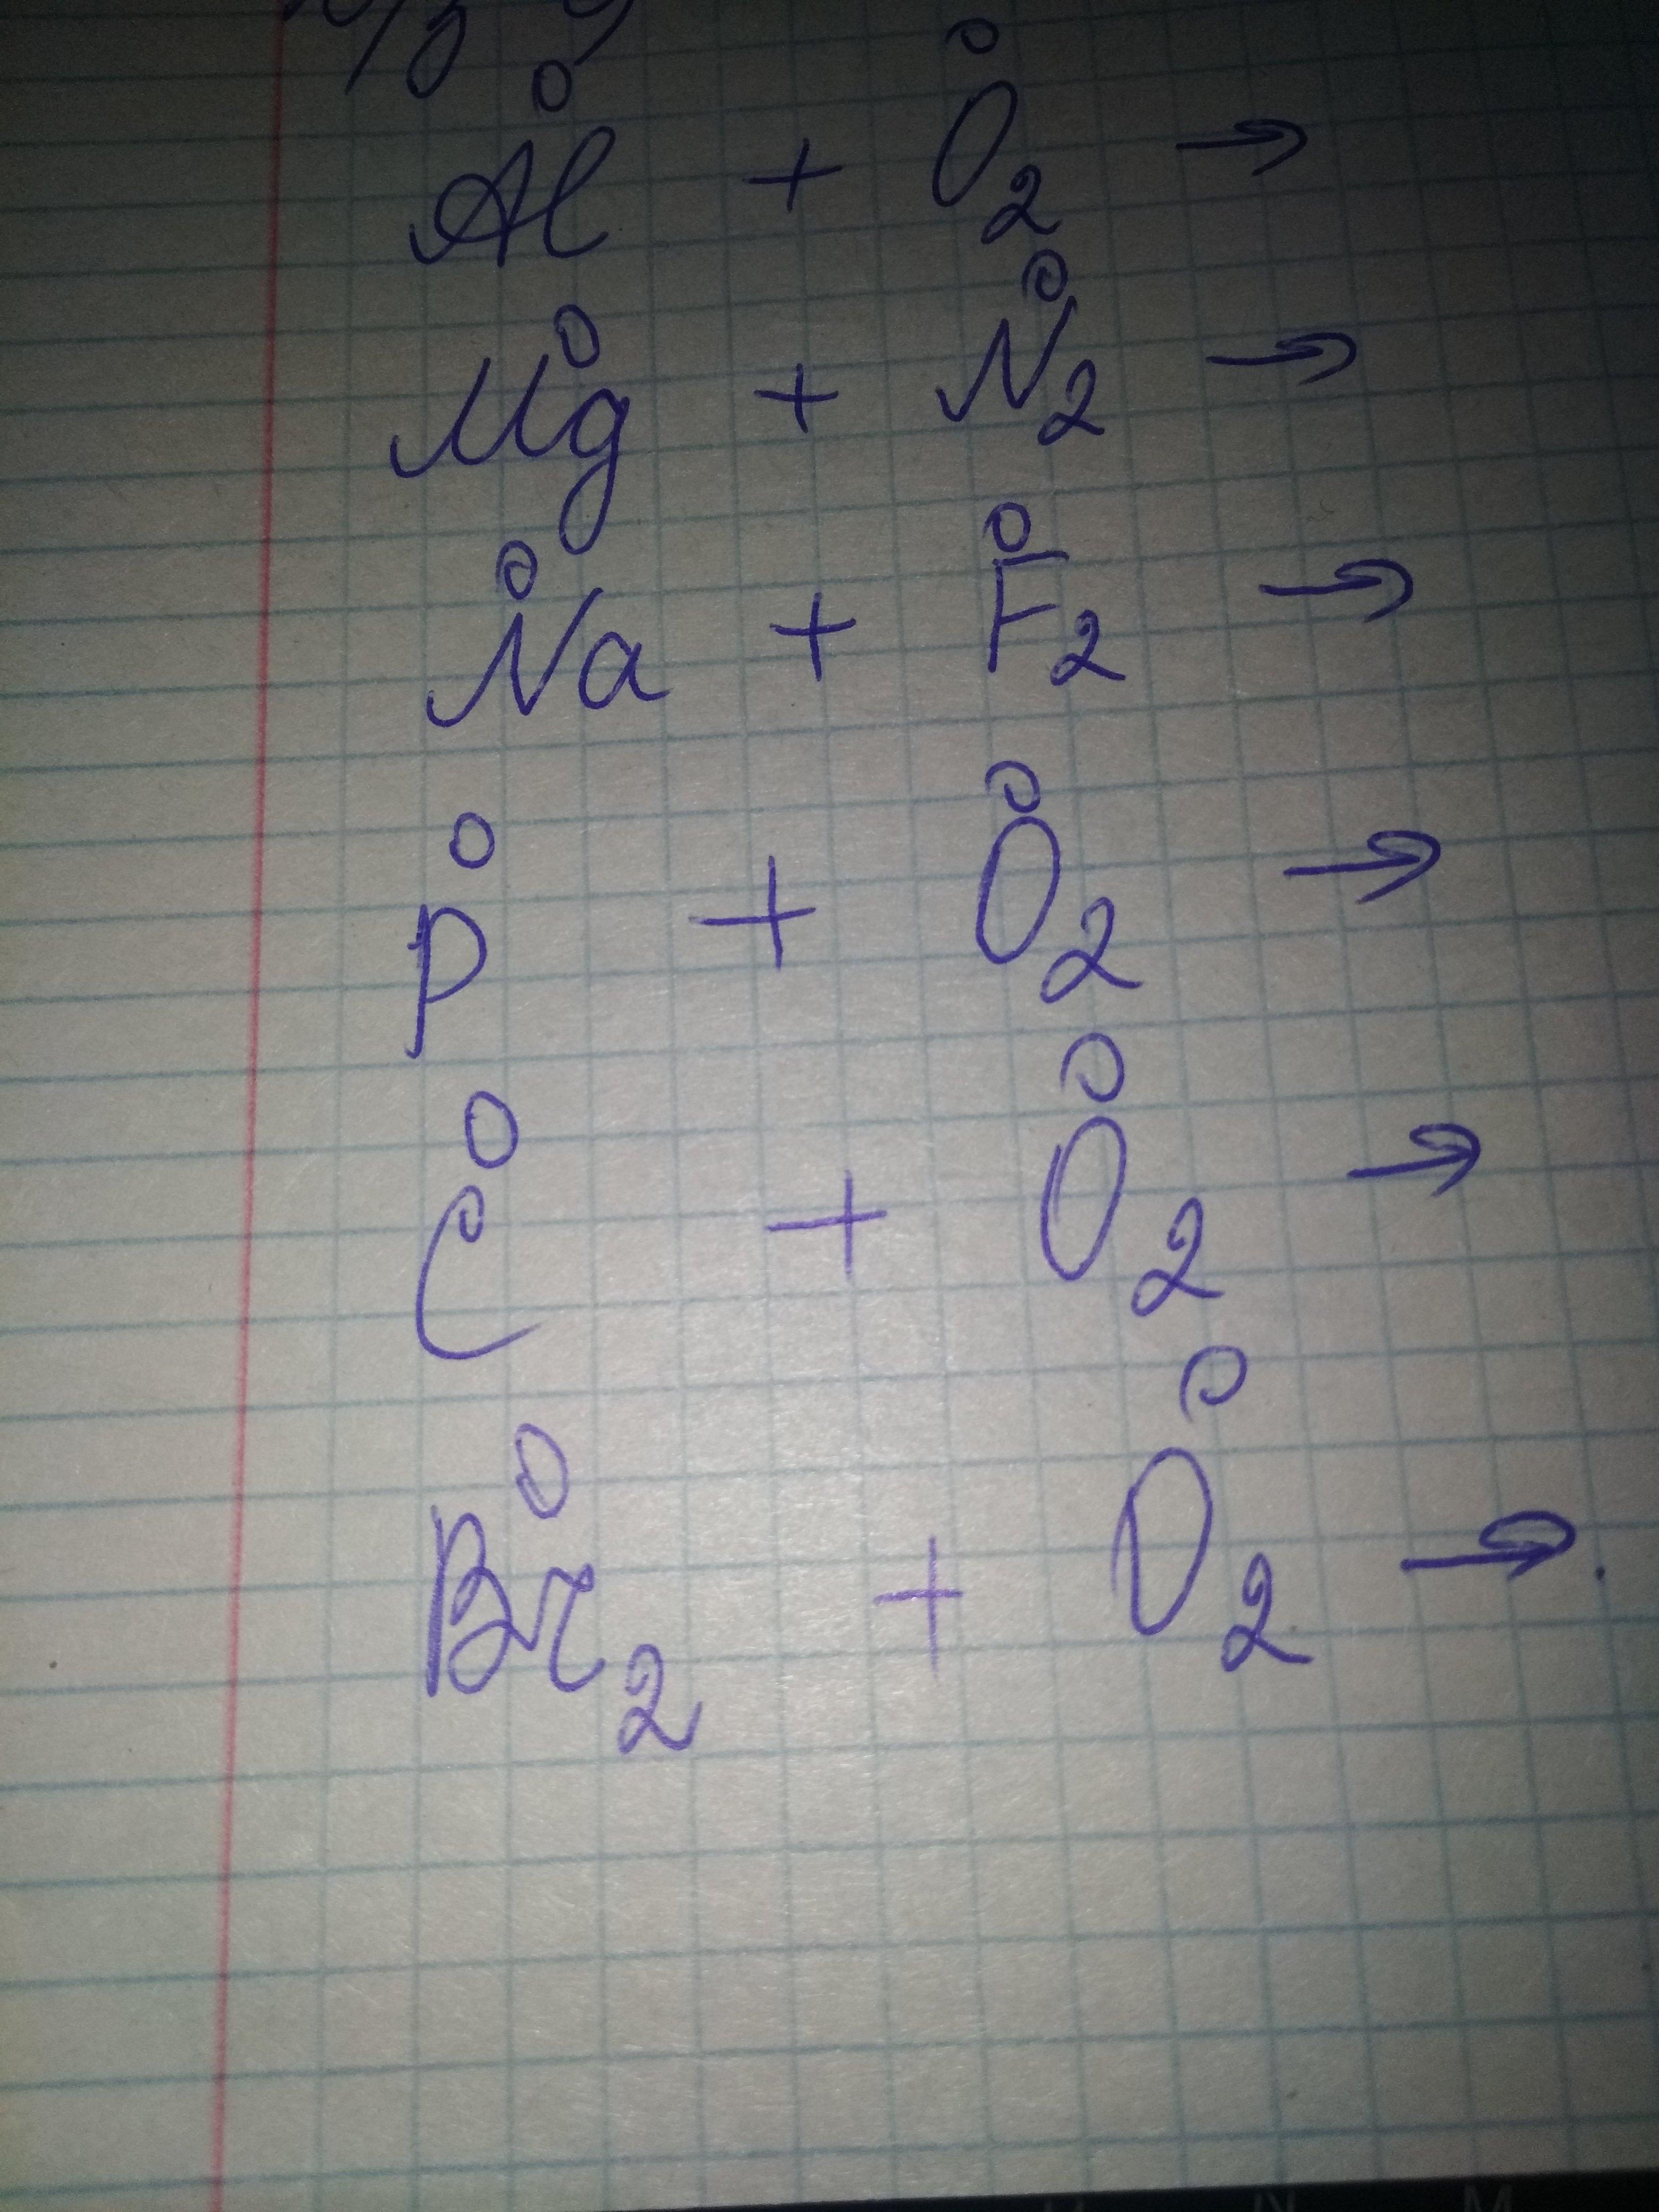 Al⁰ + O₂⁰ →
Mg⁰ + N₂⁰ →
Na⁰ + F₂⁰ →
P⁰ + O₂⁰ →
C⁰ + O₂⁰ →
Br₂⁰ + O₂⁰ →.